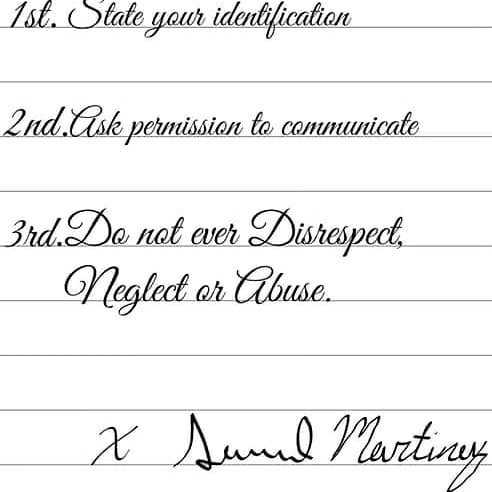 1st. State your identification
2nd. Ask permission to communicate
3rd. Do not ever Disrespect,
Neglect or Abuse.
X Martinez